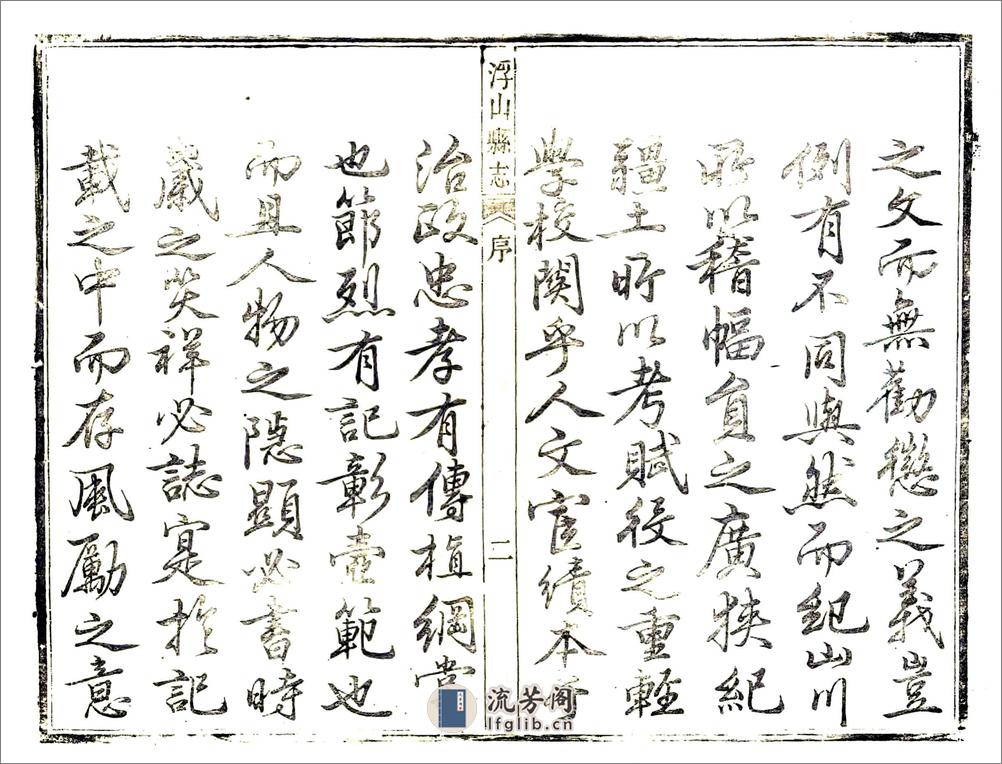 之文而無勸懲之義豈
例有不同與然而紀山川
所以稽幅員之廣狹紀
疆土所以考賦役之重輕
學校関乎人文宦績本
浮山縣志
序
二
治政忠孝有傳植綱常
也節烈有記彰壼範也
而且人物之隱顯必書時
歲之災祥必誌寔於記
載之中而存風勵之意
流芳阁
lfglib.cn